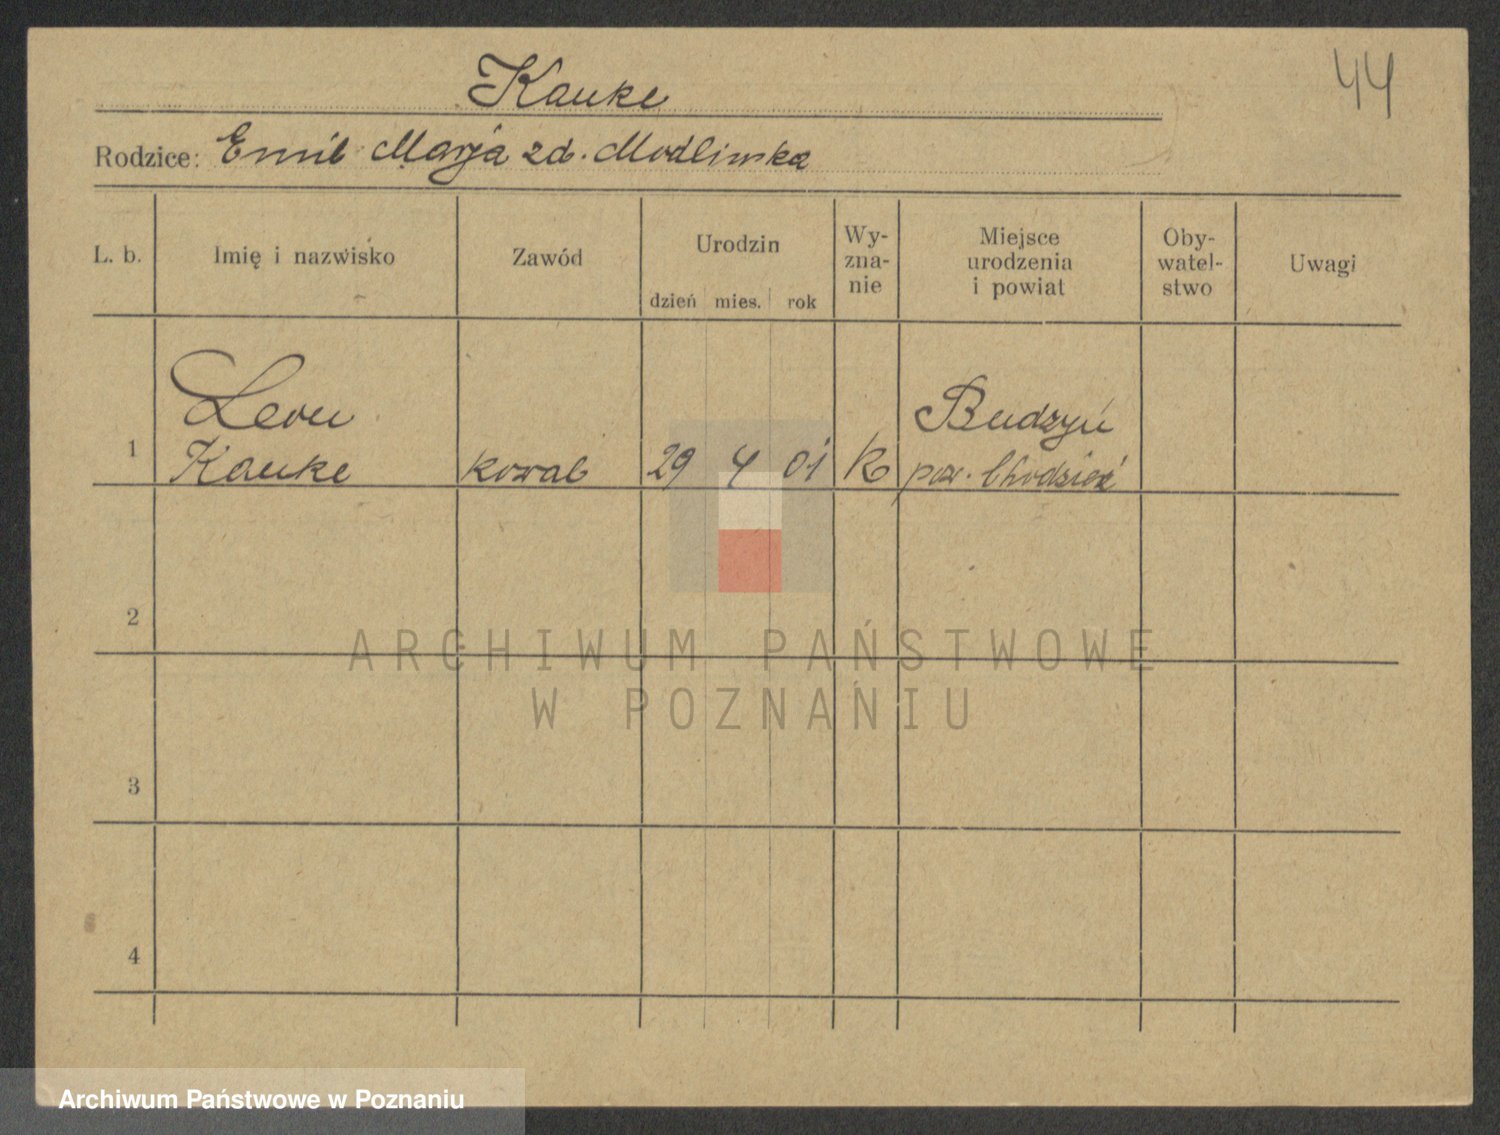 44
Kauke
Rodzice: Emil Marja zd. Modlinska
L. b.
Imię i nazwisko
Zawód
Urodzin
dzień mies. rok
Wy-
zna-
nie
Miejsce
urodzenia
i powiat
Oby-
watel-
stwo
Uwagi
1
Leon
Kauke
kowal
29 4 01
Budzyń
pow. Chodzież
2
3
4
ARCHIWUM PAŃSTWOWE
W POZNANIU
Archiwum Państwowe w Poznaniu